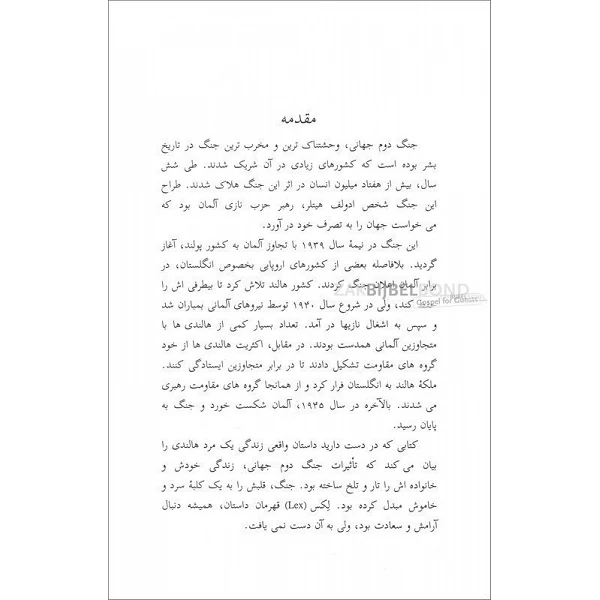 مقدمه
جنگ دوم جهانی، وحشتناک ترین و مخرب ترین جنگ در تاریخ
بشر بوده است که کشورهای زیادی در آن شریک شدند. طی شش
سال، بیش از هفتاد میلیون انسان در اثر این جنگ هلاک شدند. طراح
این جنگ شخص ادولف هیتلر، رهبر حزب نازی آلمان بود که
می خواست جهان را به تصرف خود در آورد.
این جنگ در نیمهٔ سال ۱۹۳۹ با تجاوز آلمان به کشور پولند، آغاز
گردید. بلافاصله بعضی از کشورهای اروپایی بخصوص انگلستان، در
برابر آلمان اعلان جنگ کردند. کشور هالند تلاش کرد تا بیطرفی اش را
کند، ولی در شروع سال ۱۹۴۰ توسط نیروهای آلمانی بمباران شد
و سپس به اشغال نازیها در آمد. تعداد بسیار کمی از هالندی ها با
متجاوزین آلمانی همدست بودند. در مقابل، اکثریت هالندی ها از خود
گروه های مقاومت تشکیل دادند تا در برابر متجاوزین ایستادگی کنند.
ملکهٔ هالند به انگلستان فرار کرد و از همانجا گروه های مقاومت رهبری
می شدند. بالآخره در سال ۱۹۴۵، آلمان شکست خورد و جنگ به
پایان رسید.
کتابی که در دست دارید داستان واقعی زندگی یک مرد هالندی را
بیان می کند که تأثیرات جنگ دوم جهانی، زندگی خودش و
خانواده اش را تار و تلخ ساخته بود. جنگ، قلبش را به یک کلبهٔ سرد و
خاموش مبدل کرده بود. لِکس (Lex) قهرمان داستان، همیشه دنبال
آرامش و سعادت بود، ولی به آن دست نمی یافت.
ZAKBIJBELBOND